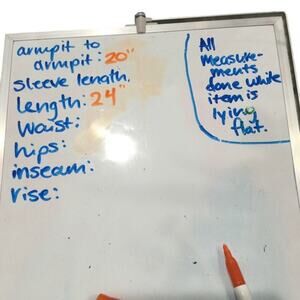 armpit to
armpit: 20"
sleeve length,
Length: 24"
Waist:
hips:
inseam:
rise:
All
measure-
ments
done while
item is
lying
flat.